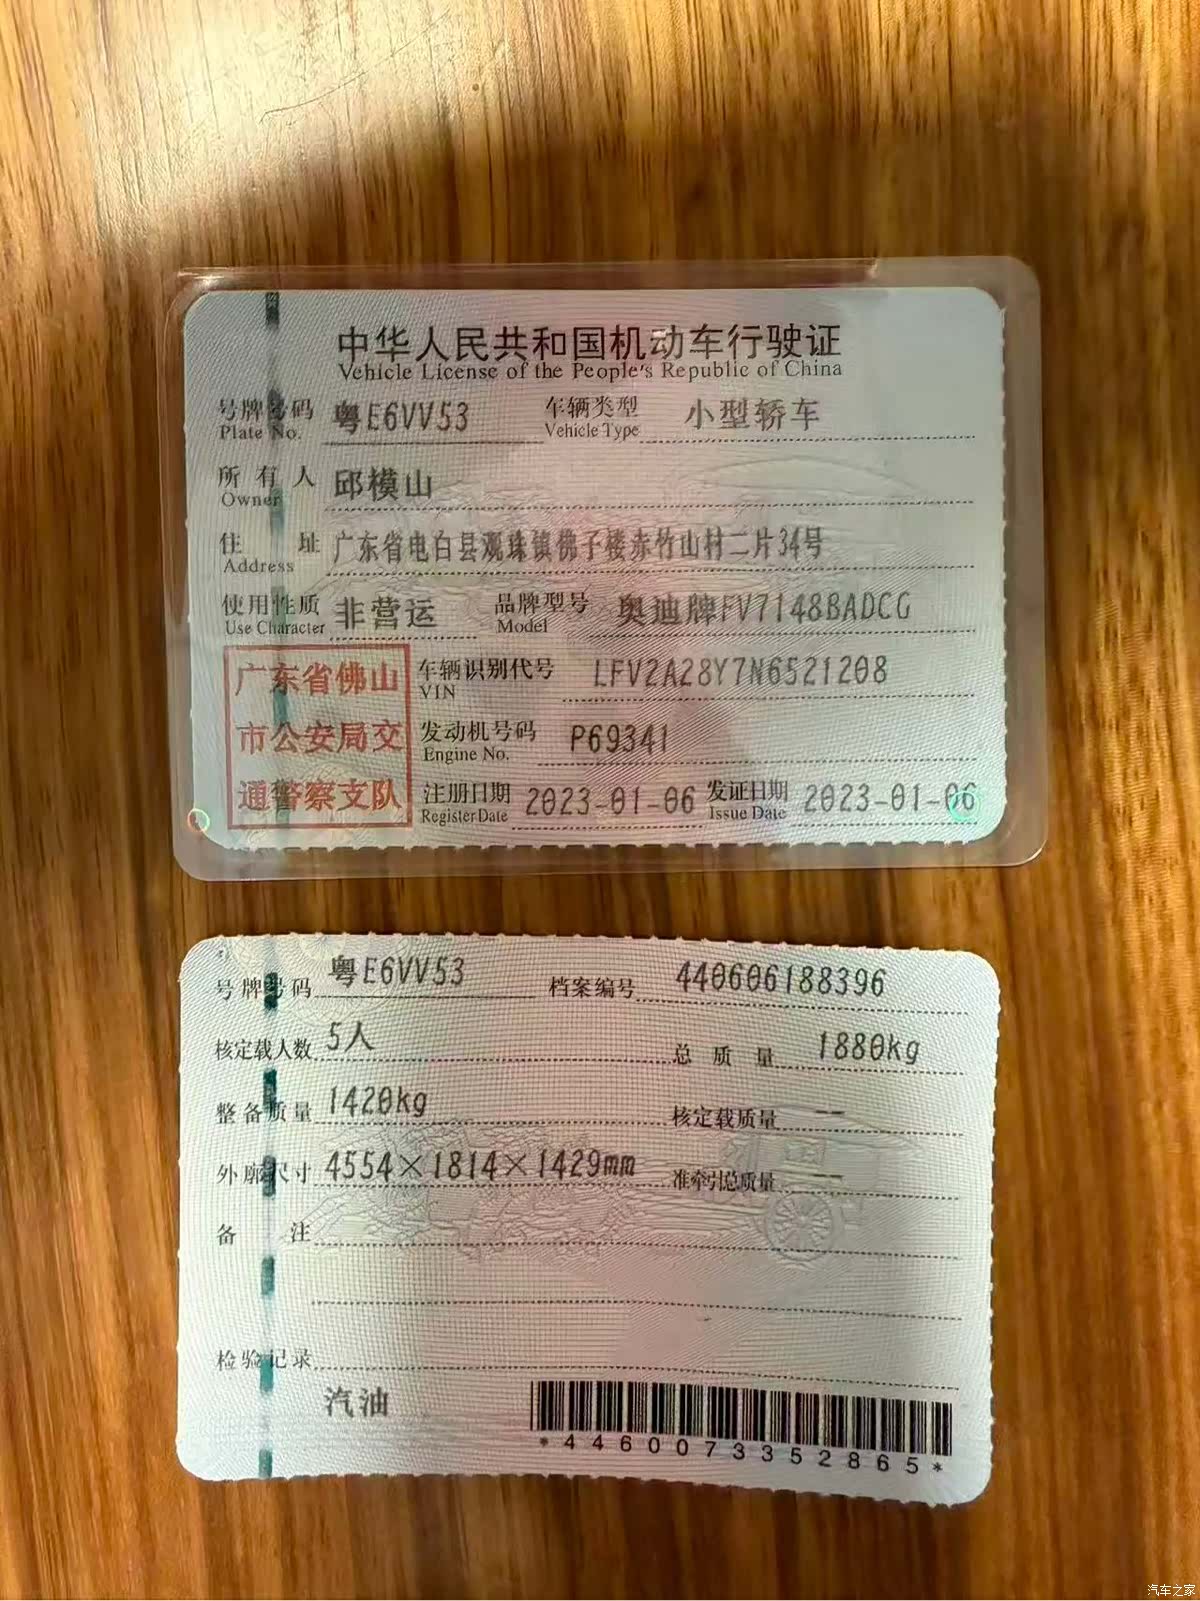 中华人民共和国机动车行驶证
Vehicle License of the People's Republic of China
号牌号码 粤E6VV53 车辆类型 小型轿车
Plate No. Vehicle Type
所有人 邱模山
Owner
住址 广东省电白县观珠镇佛子楼赤竹山村二片34号
Address
使用性质 非营运 品牌型号 奥迪牌FV7148BADCG
Use Character Model
广东省佛山 车辆识别代号 LFV2A28Y7N6521208
VIN
市公安局交 发动机号码 P69341
Engine No.
通警察支队 注册日期 2023-01-06 发证日期 2023-01-06
Register Date Issue Date
号牌号码 粤E6VV53 档案编号 440606188396
核定载人数 5人 总质量 1880kg
整备质量 1420kg 核定载质量 --
外廓尺寸 4554×1814×1429mm 准牵引总质量 --
备注
检验记录
汽油
*4460073352865*
汽车之家